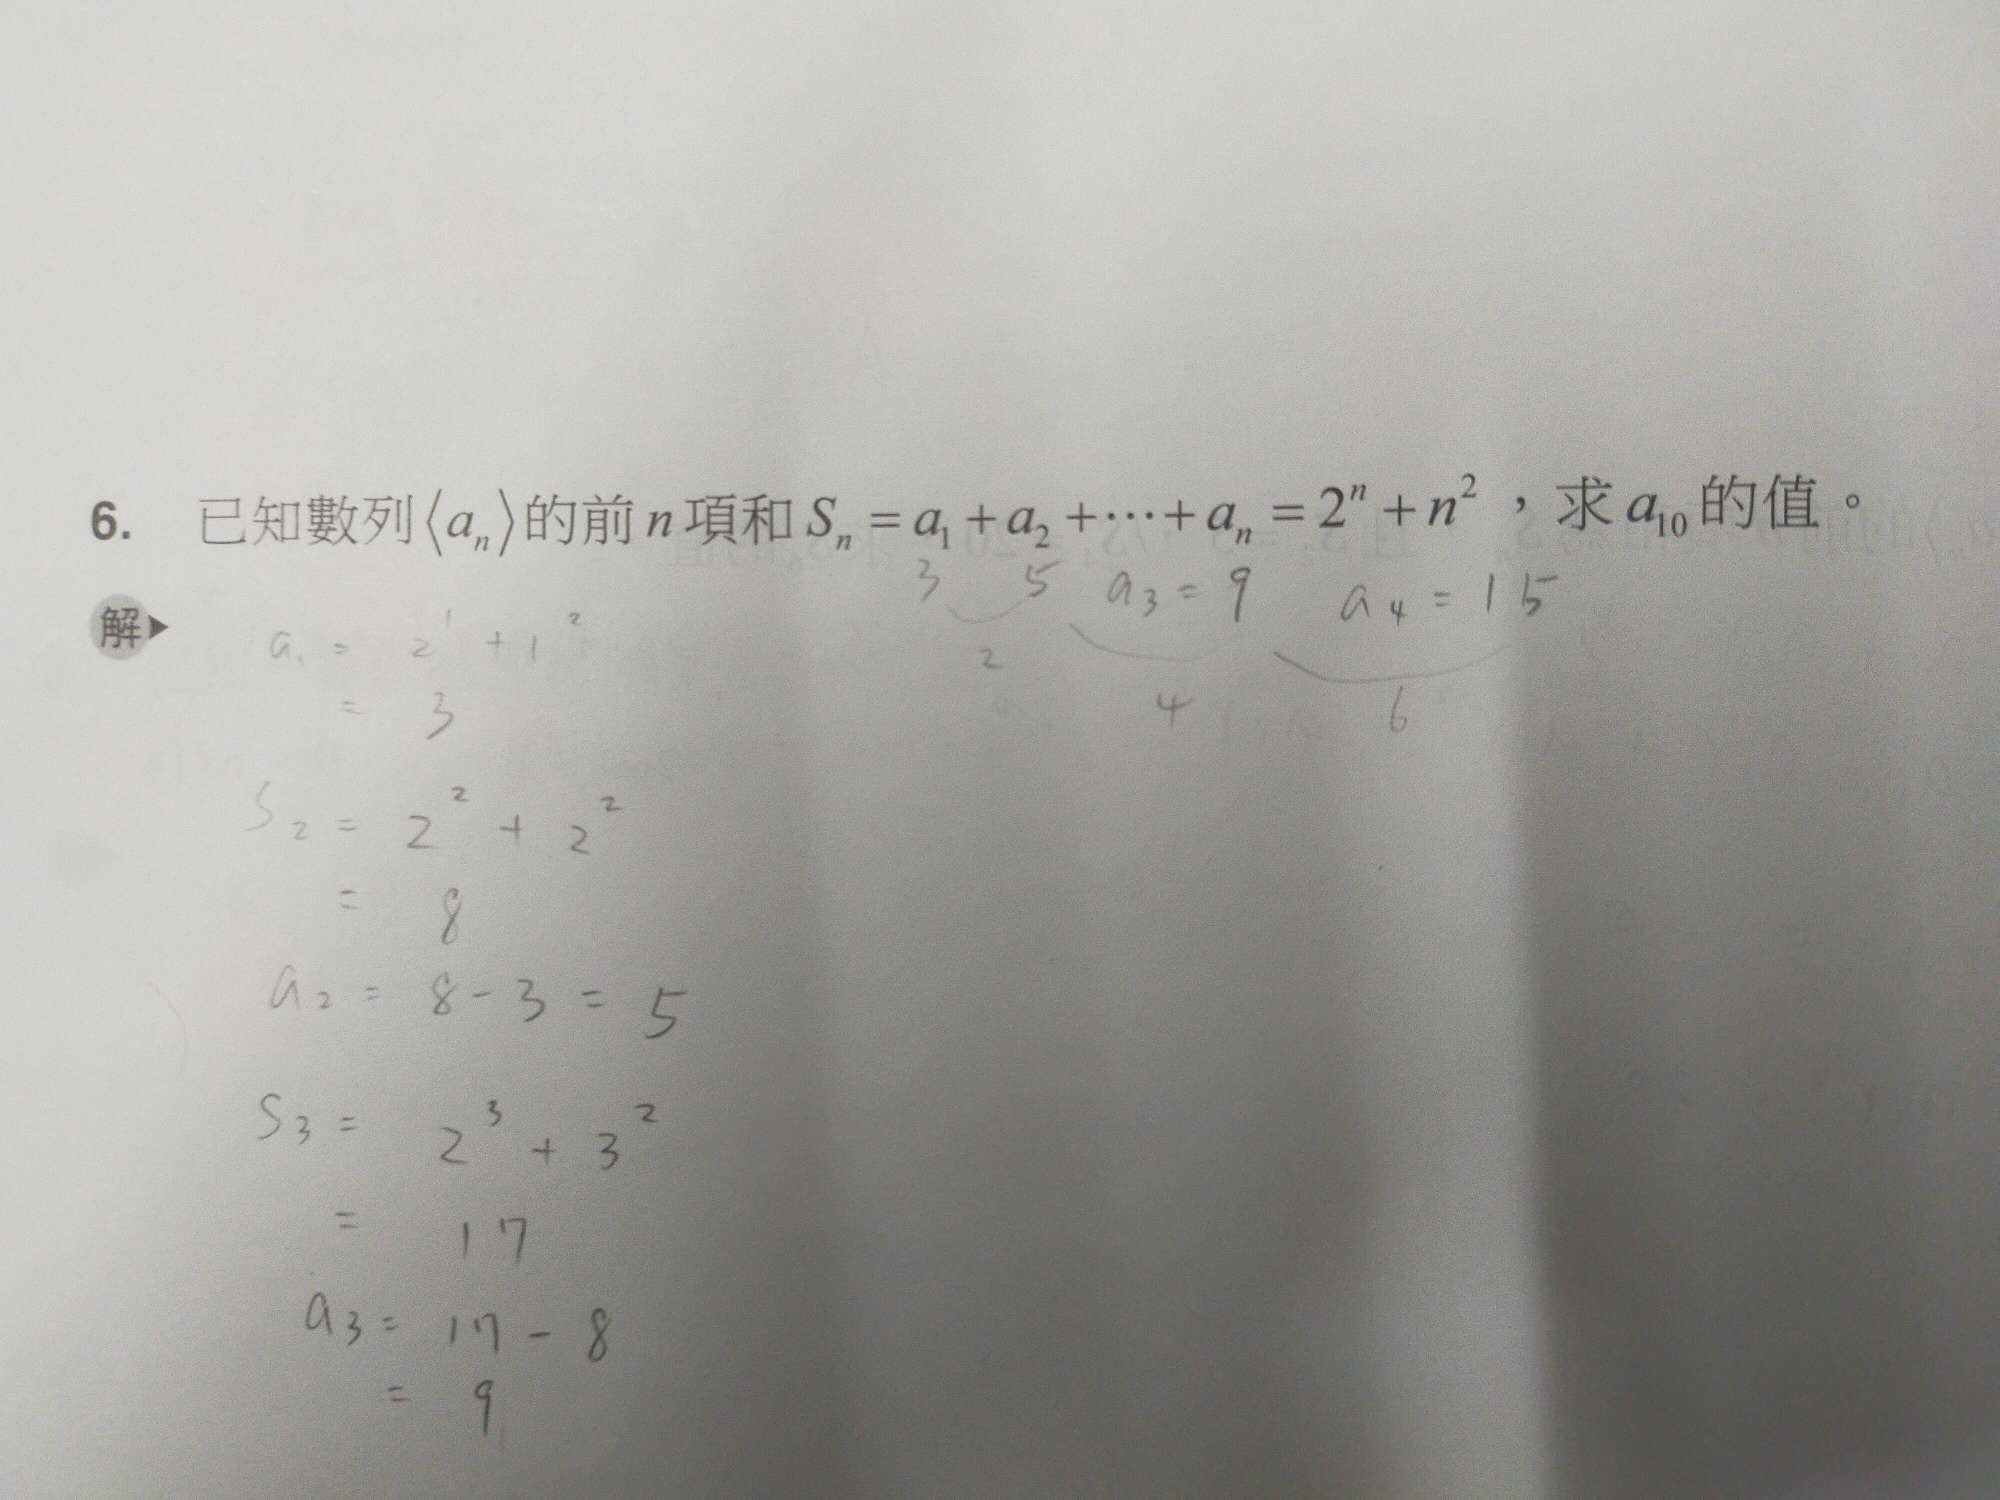 6. 已知數列⟨aₙ⟩的前 n 項和 Sₙ = a₁ + a₂ + ⋯ + aₙ = 2ⁿ + n²，求 a₁₀ 的值。
3 5 a₃ = 9 a₄ = 15
2 4 6
解▶
a₁ = 2¹ + 1²
= 3
S₂ = 2² + 2²
= 8
a₂ = 8 - 3 = 5
S₃ = 2³ + 3²
= 17
a₃ = 17 - 8
= 9